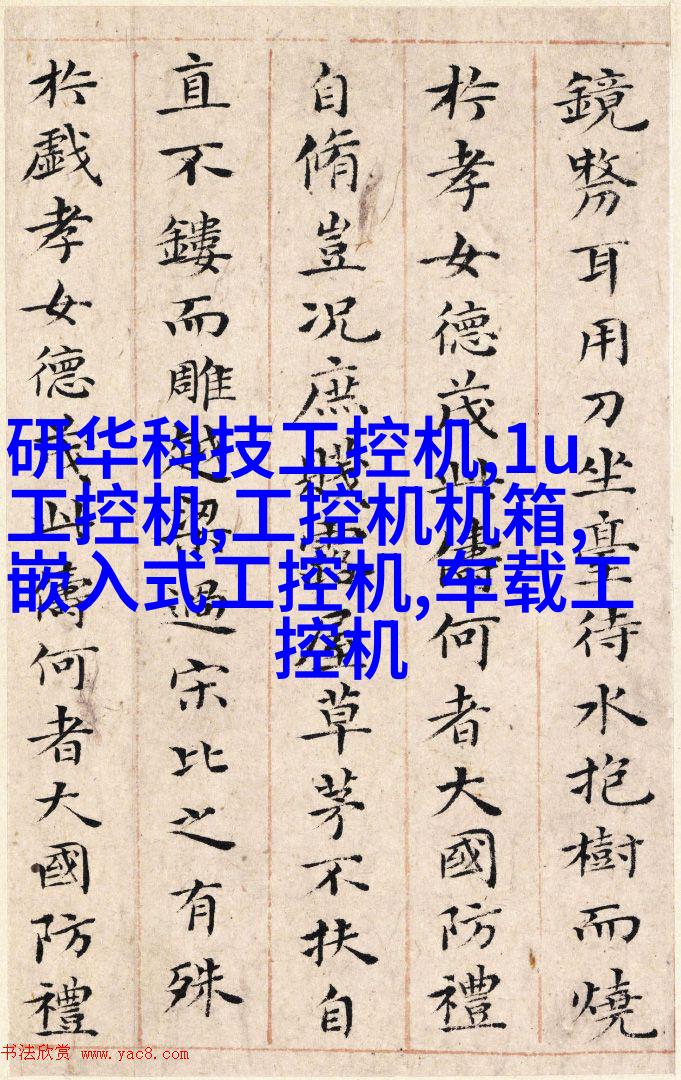 鏡剺耳用刀坐臺待水抱樹而燒
扵孝女德茂此儔何者大國防禮
自脩豈况庶賤露屋草茅不扶自
直不鏤而雕越梁過宋比之有殊
扵戲孝女德茂此儔何者大國防禮
研华科技工控机,1u
工控机,工控机机箱,
嵌入式工控机,车载工
控机
书法欣赏 www.yac8.com